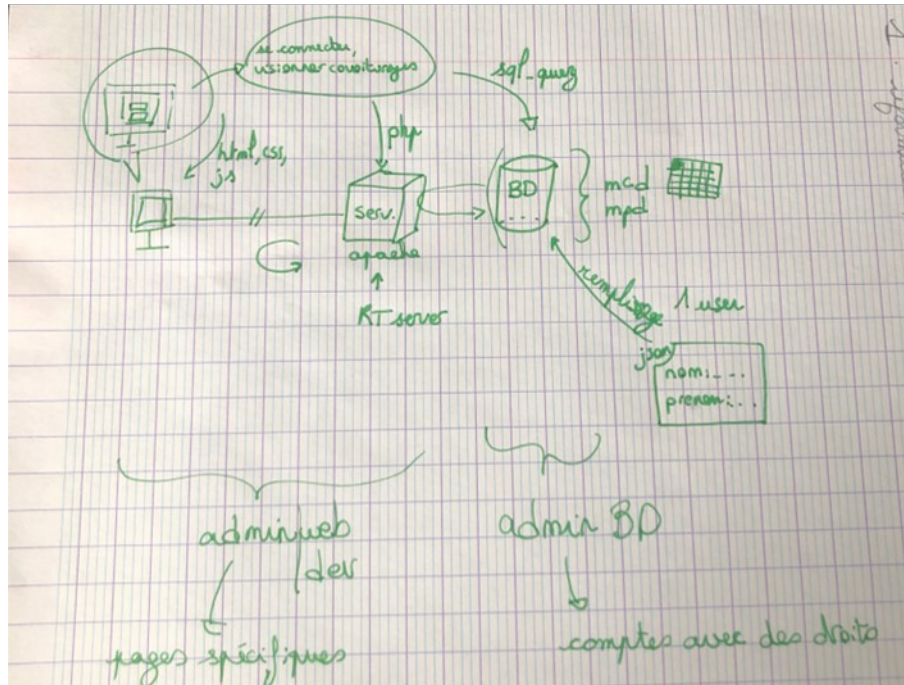 se connecter,
visionner covoiturages
sql_query
html, css,
js
php
BD
...
mcd
mpd
serv.
apache
RT server
remplissage
1 user
json
nom:_ . .
prenom: . .
admin web
/dev
admin BD
pages spécifiques
comptes avec des droits